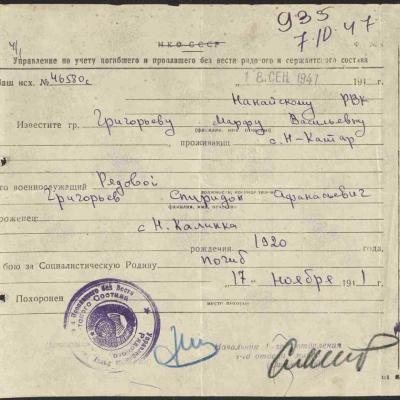 935
7/IV.47
Ч/1
Н К О С С С Р
Ф. №
Управление по учету погибшего и пропавшего без вести рядового и сержантского состава
Ваш исх. № 46580с
18 СЕН 1947
194 г.
Нанайскому РВК
Известите гр. Григорьеву Марфу Васильевну
(фамилия, имя, отчество)
проживающ с. Н-Катар
го военнослужащий Рядовой
Григорьев Спиридон Афанасьевич
фамилия, имя, отчество
роженец:
с Н. Калинка
рождения 1920 года,
бою за Социалистическую Родину Погиб
17 Ноября 1941
Похоронен
место похорон
Начальник 1-го отделения
1-го отдела